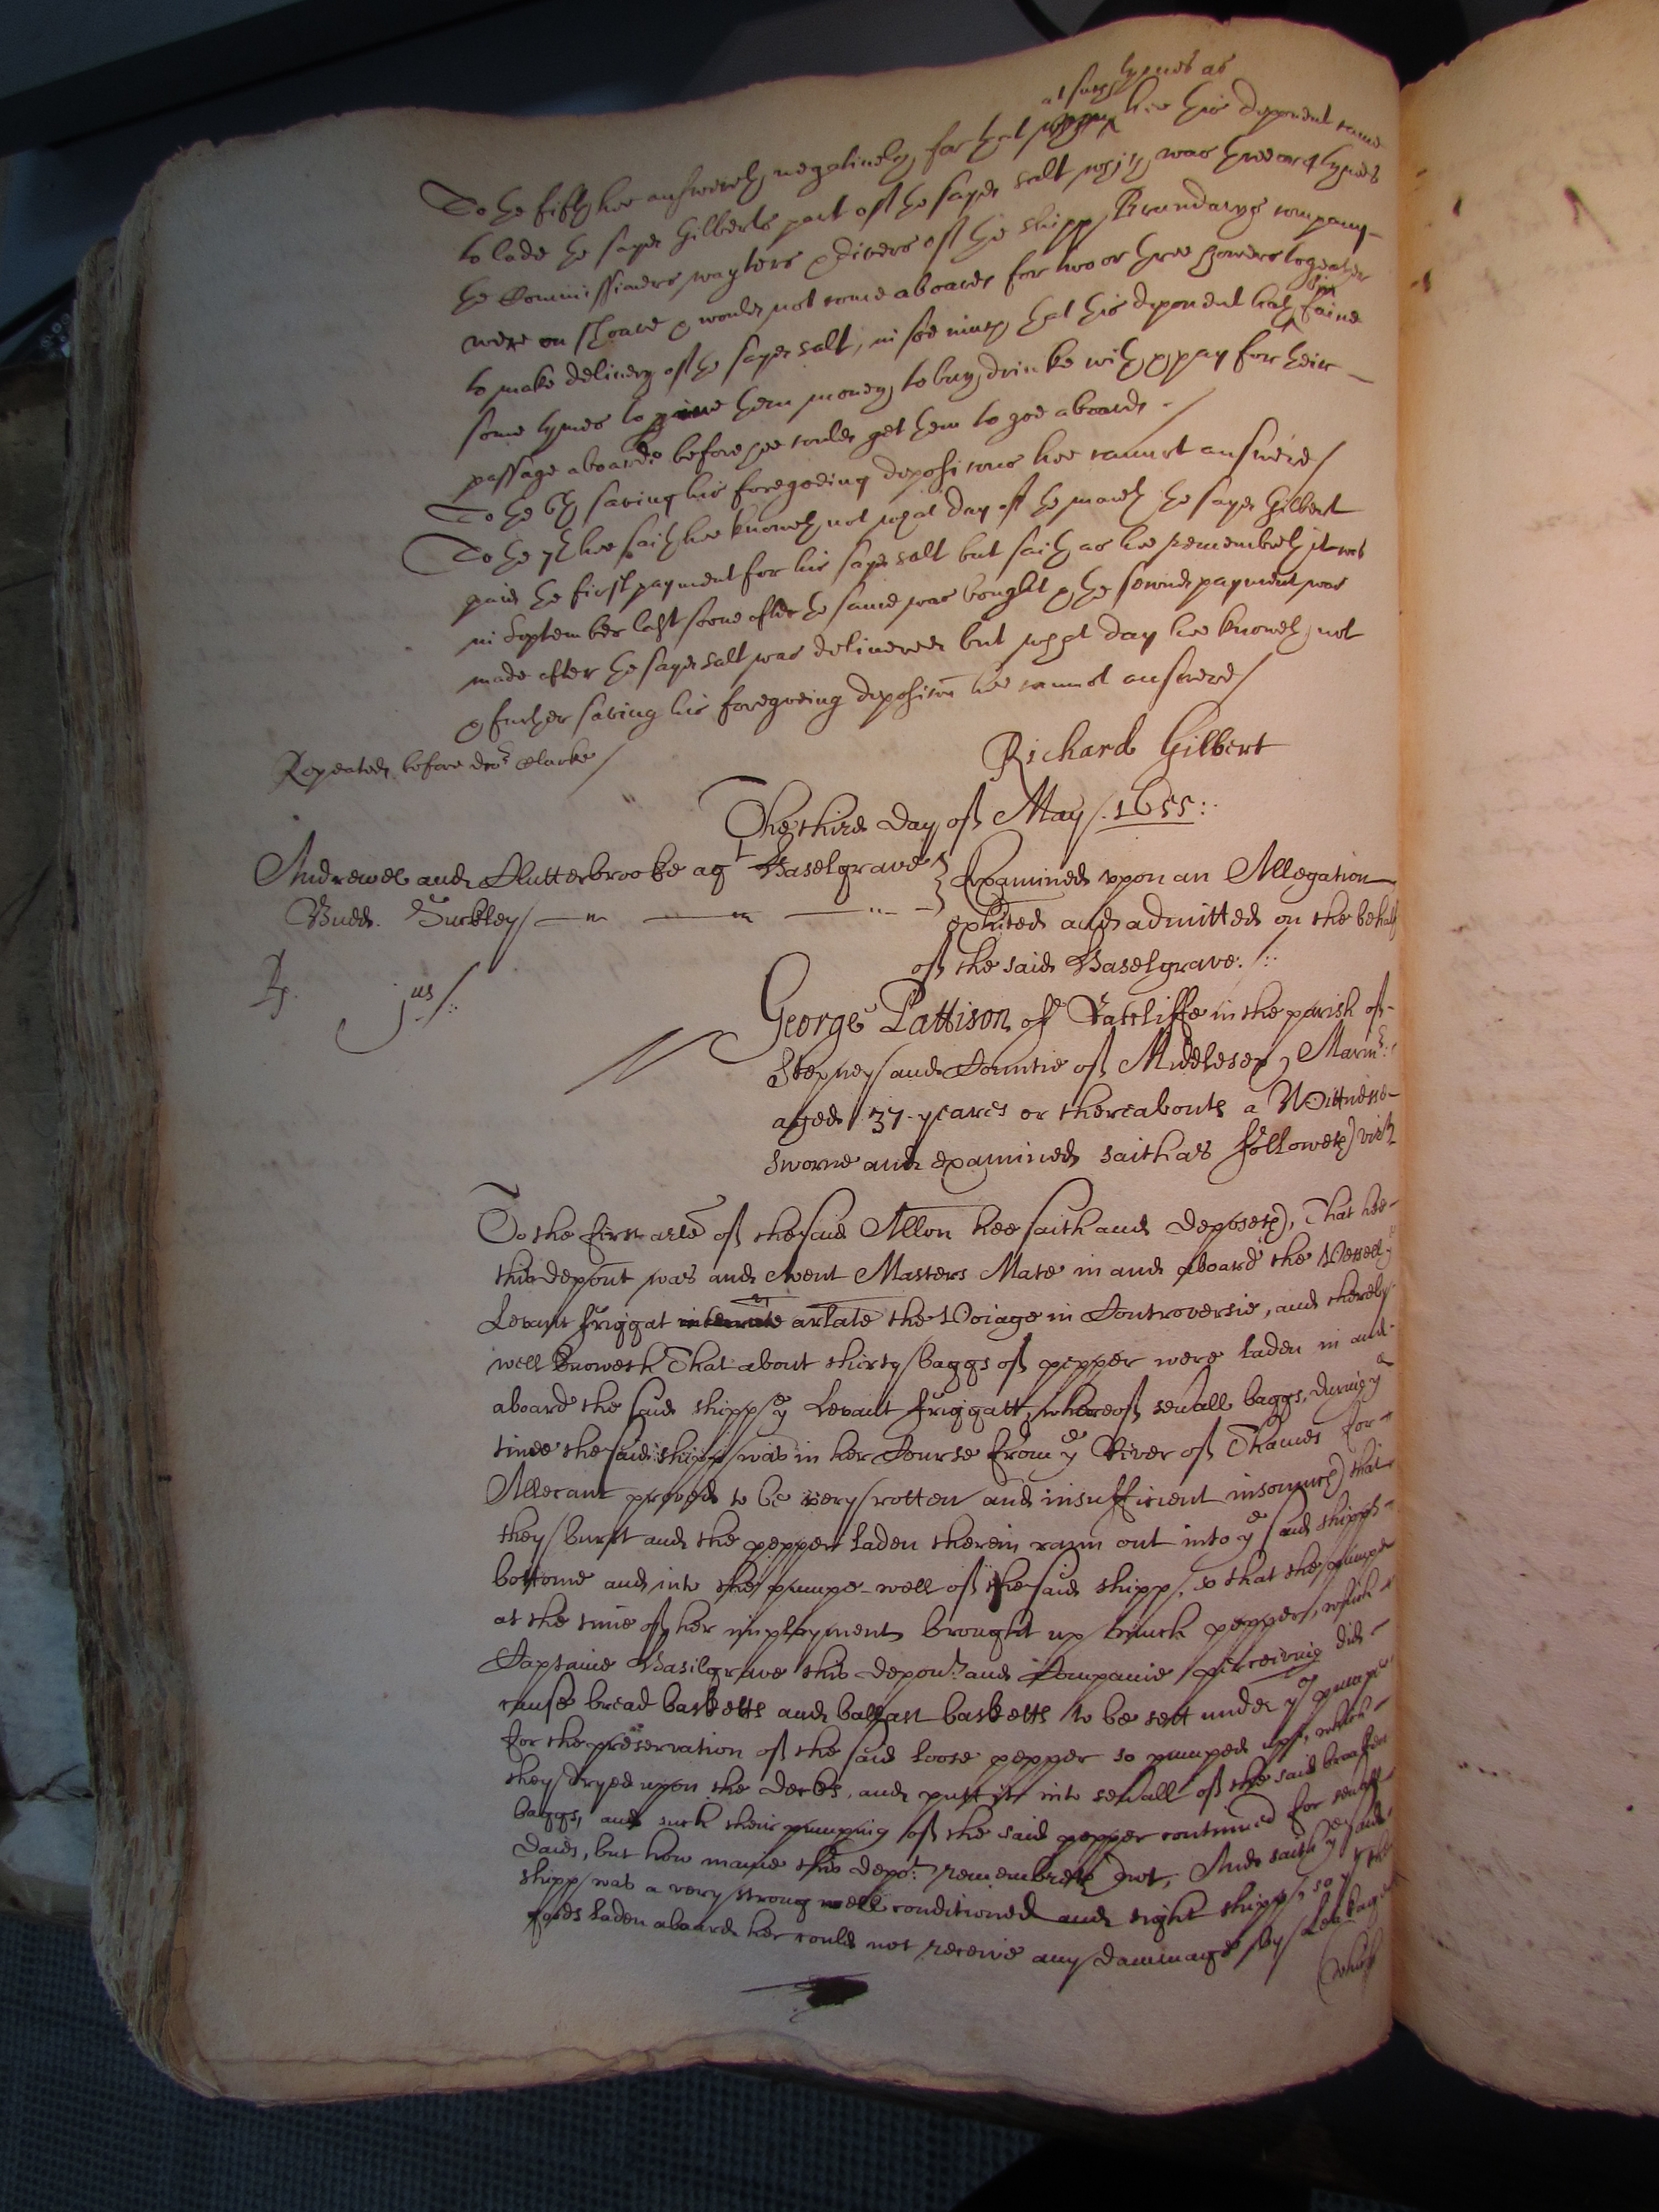 at such tymes as
To the fifth hee answereth negatively, for that when hee this deponent came
to lade the sayd Gilberts part of the sayd salt which was three or 4 tymes
the Commissioners wayters & divers of the shipp Brundarys company
were on shoare & would not come aboard for two or three howers togeather
to make delivery of the sayd salt, in soe much that this deponent hath bin faine
some tymes to give them money to buy drinke with & pay for their
passage aboard before hee could get them to goe aboard.
To the 6th saving his foregoeing depositions hee cannot answere/
To the 7th hee saith hee knoweth not what day of the moneth the sayd Gilbert
paid the first payment for his sayd salt but saith as hee remembreth it was
in September last soone after the same was bought & the second payment was
made after the sayd salt was delivered but what day hee knoweth not
& further saving his foregoeing deposition hee cannot answere/
Repeated before docr Clarke/
Richard Gilbert
The third day of May 1655:
Andrewes and Clutterbrooke agt Baselgrave
Budd. Suckley/
Examined upon an Allegation
exhited and admitted on the behalf
of the said Baselgrave:/:
Rp. jus/:
George Pattison of Ratcliffe in the parish of
Stepney and Countie of Middlesex, Marinr:
aged 37 yeares or thereabouts a Wittnesse
sworne and examined saith as followeth vizt
To the first arle of the said Allon hee saith and deposeth, That hee
this depont was and went Masters Mate in and aboard the Vessell ye
Levant friggat arlate the Voiage in Controversie, and thereby
well knoweth That about thirty baggs of pepper were laden in and
aboard the said shipp ye Levant friggatt, whereof severall baggs, during ye
time the said shipp was in her Course from ye River of Thames for
Allecant proved to be very rotten and insufficient insomuch that
they burst and the pepper laden therein rann out into ye said shipps
bottome and into the pumpe-well of the said shipp, so that the pumpe
at the time of her imployment brought up much pepper, which
Captaine Basilgrave this depont and Companie perceiving did
cause bread basketts and ballast basketts to be sett under ye pumpe
for the preservation of the said loose pepper so pumped upp, which
they dryed upon the decks, and putt it into severall of the said broaken
baggs, and such their pumping of the said pepper continued for severall
daies, but how manie this depot remembreth not, And saith ye said
shipp was a very strong well conditioned and tight shipp, so yt the
goods laden aboard her could not receive any dammage by Leakage
which